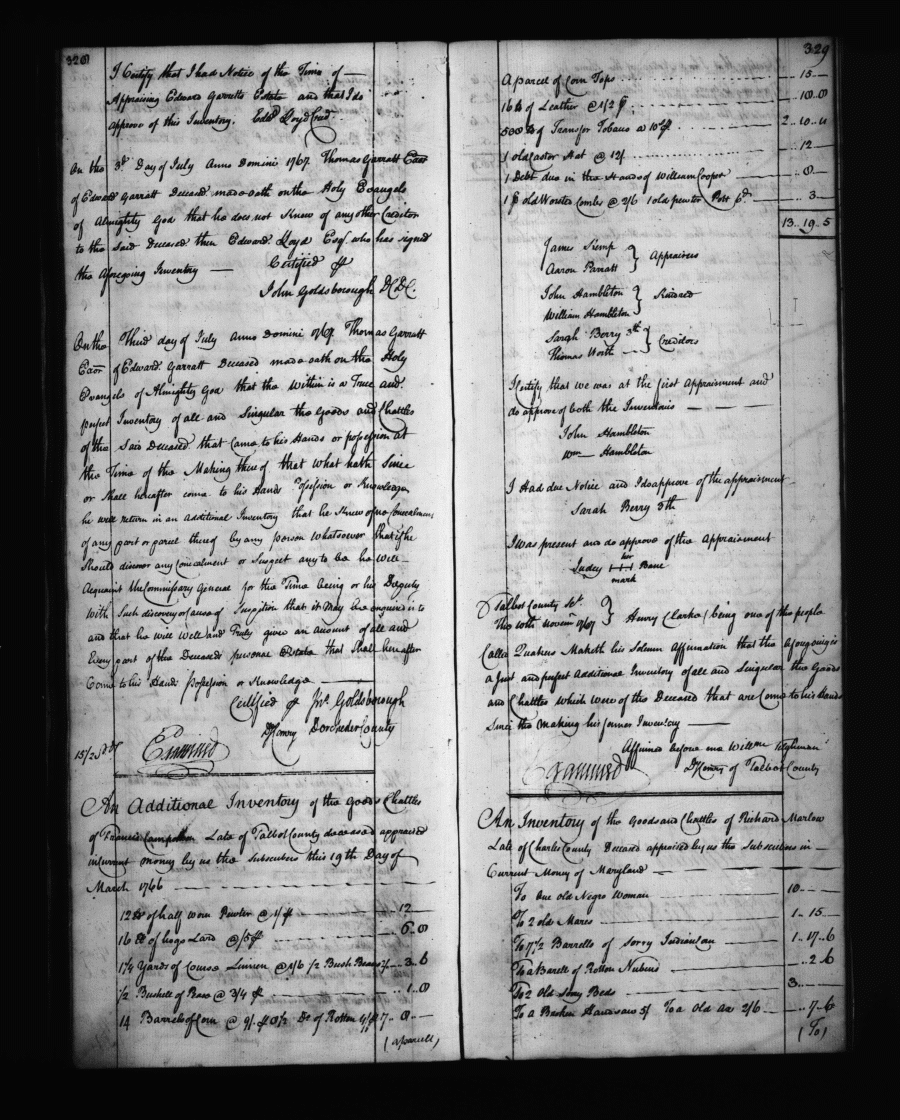 328
I Certify that I had Notice of the Time of —
Appraising Edward Garretts Estate and that I do
approve of this Inventory. Edwd Lloyd Cred
On the 3d Day of July Anno Domini 1767 Thomas Garratt Exor
of Edward Garratt Deceased made oath on the Holy Evangels
of Almighty God that he does not Know of any other Creditor
to the said Deceased then Edward Lloyd Esqr who has signed
the aforegoing Inventory —
Certified pr
John Goldsborough D C D C
On the Third day of July Anno Domini 1767 Thomas Garratt
Exor of Edward Garratt Deceased made oath on the Holy
Evangels of Almighty God that the within is a True and
perfect Inventory of all and Singular the Goods and Chattles
of the Said Deceased that Came to his Hands or possession at
the Time of the Making there of that what hath Since
or Shall hereafter come to his Hands Possession or Knowledge
he will return in an additional Inventory that he Knew of no Concealment
of any part or parcel thereof by any person whatsoever that if he
Should discover any Concealment or Suspect any to be he will
Acquaint the Commissary General for the Time being or his Deputy
With Such discovery of cause of Suspition that it May be enquired into
and that he will well and Truly give an account of all and
Every part of the Deceaseds personal Estate that Shall hereafter
Come to his Hands Possession or Knowledge
Certified pr Jno Goldsborough
DComry Dorchester County
Examined
An Additional Inventory of the Goods Chattles
of Francis Late of Talbot County deceased appraised
in Current money by us the Subscribers this 19th Day of
March 1766
12 lb of half worn Pewter @ 1/ p 12
16 lb of hogs Lard @ /5 p 6 .. 8
1¼ Yards of Course Linnen @ 1/6 ½ Bush Beans 3 .. 6
½ Bushell of Peas @ 3/4 p 1 .. 8
14 Barrels of Corn @ 9/ Do of Rotten 7 .. 8
(a parcell)
329
A parcel of Corn Tops 15
16 lb of Leather @ 1/2 p 18 .. 8
500 lb of Transfer Tobaco a 10/ p 2 .. 10 .. 0
1 old Castor Hat @ 12/ 12
1 Debt due in the Hands of William Cooper 8
1 p old Worsted Combs @ 2/6 1 old pewter Pott 6d 3
13 .. 19 .. 5
James Kemp
Aaron Parratt } Appraisers
John Hambleton
William Hambleton } Kindred
Sarah Berry 3th
Thomas North } Creditors
I Certify that we was at the first Appraisment and
do approve of both the Inventories
John Hambleton
Wm Hambleton
I Had due Notice and I do approve of the appraisment
Sarah Berry 3th
I was present and do approve of the Appraisment
her
mark
Talbot County Sct.
This 10th Novem 1767 } Henry Clarke (being one of the people
Called Quakers Maketh his Solemn Affirmation that the aforegoing is
a Just and perfect Additional Inventory of all and Singular the Goods
and Chattles which were of the Deceased that are Come to his Hands
Since the Making his former Inventory
Affirmed before me Willm Tilghman
DComry of Talbot County
Examined
An Inventory of the Goods and Chattles of Richard Marlow
Late of Charles County Deceased appraised by us the Subscribers in
Current Money of Maryland
To One old Negro Woman 10
To 2 old Mares 1 .. 15
To 7½ Barrells of Sorry Indian Corn 1 .. 17 .. 6
To a Barrell of Rotten Nubins 2 .. 6
To 2 Old Sorry Beds 3
To a Broken Handsaw 5/ To a Old ax 2/6 7 .. 6
(To)